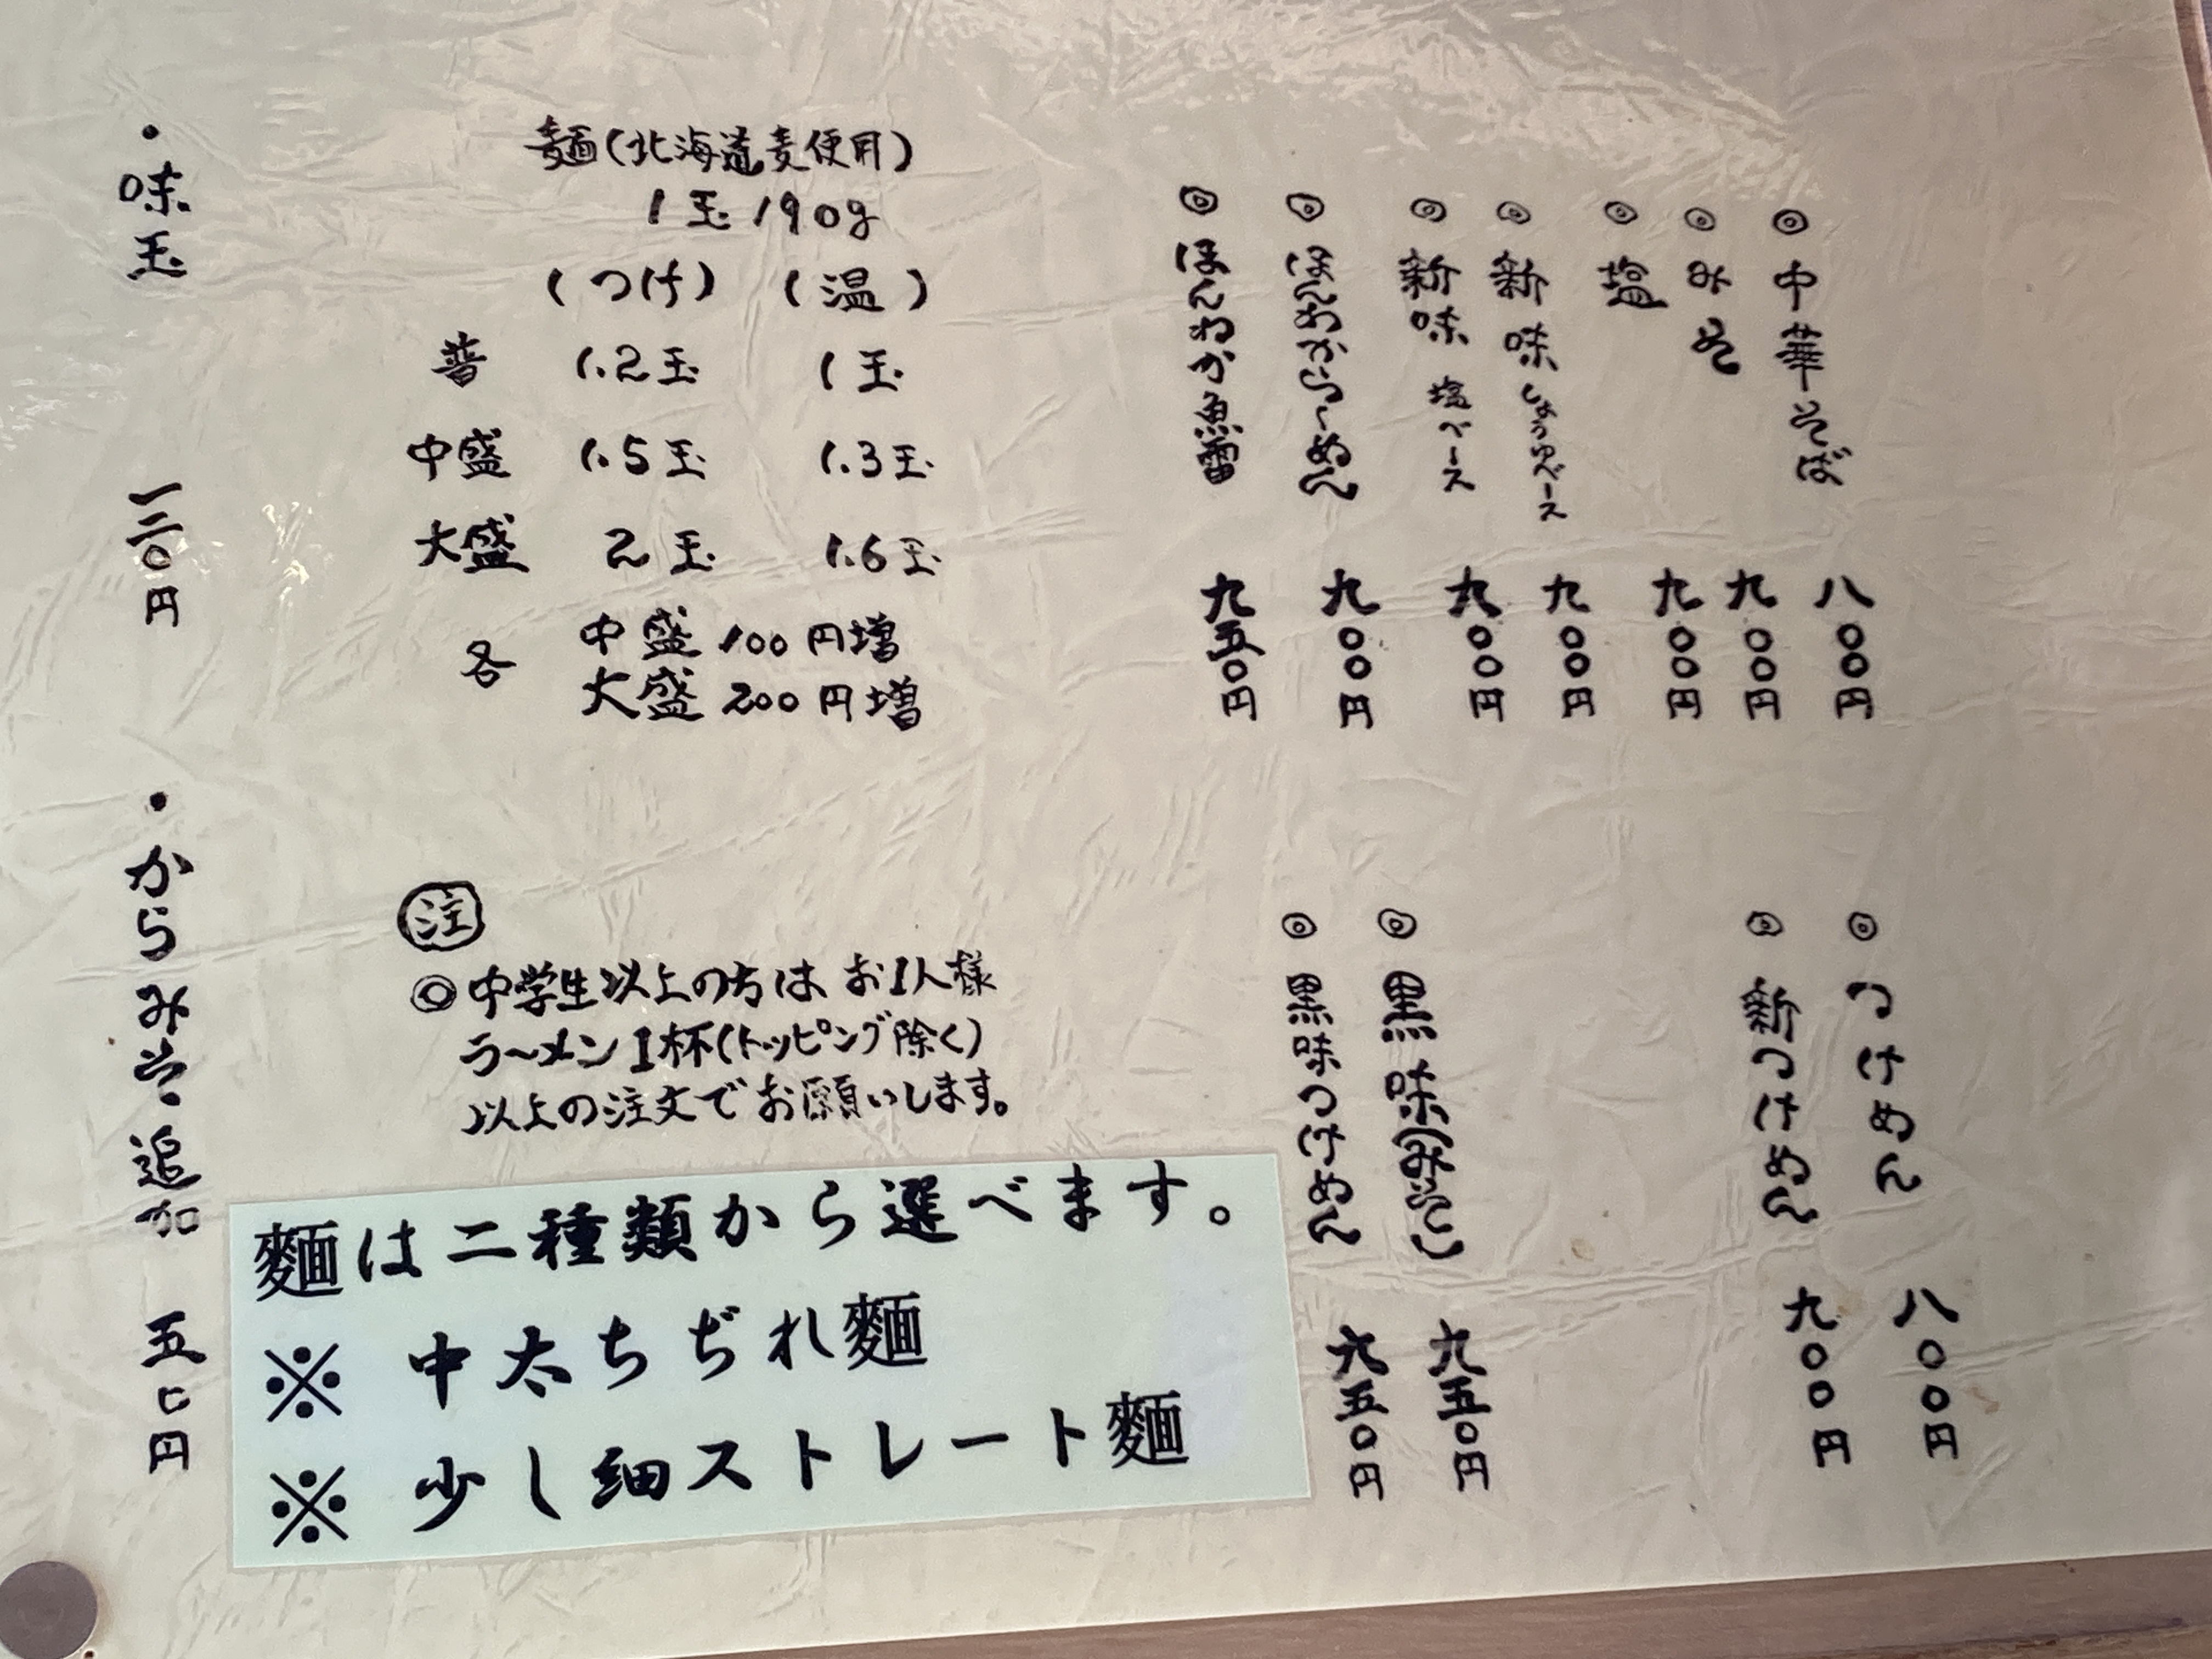 ◎中華そば 八〇〇円
◎みそ 九〇〇円
◎塩 九〇〇円
◎新味しょうゆベース 九〇〇円
◎新味 塩ベース 九〇〇円
◎ほんわからーめん 九〇〇円
◎ほんわか魚雷 九五〇円
◎つけめん 八〇〇円
◎新つけめん 九〇〇円
◎黒味(みそ) 九五〇円
◎黒味つけめん 九五〇円
麺(北海道麦使用)
1玉190g
(つけ) (温)
普 1.2玉 1玉
中盛 1.5玉 1.3玉
大盛 2玉 1.6玉
各 中盛 100円増
大盛 200円増
注
◎中学生以上の方は お1人様
ラーメン1杯(トッピング除く)
以上の注文でお願いします。
麵は二種類から選べます。
※ 中太ちぢれ麵
※ 少し細ストレート麵
・味玉 一二〇円
・からみそ追加 五〇円